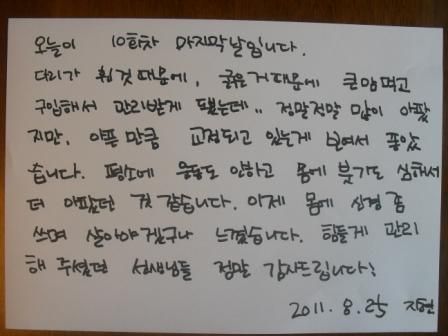 오늘이 10회차 마지막날입니다.
다리가 휜것 때문에, 굵은거 때문에 큰맘먹고
구입해서 관리받게 됐는데.. 정말정말 많이 아팠
지만, 아픈 만큼 교정되고 있는게 보여서 좋았
습니다. 평소에 운동도 안하고 몸에 붓기도 심해서
더 아팠던 것 같습니다. 이제 몸에 신경 좀
쓰며 살아야겠구나 느꼈습니다. 힘들게 관리
해 주셨던 선생님들 정말 감사드립니다!
2011. 8. 25 지현